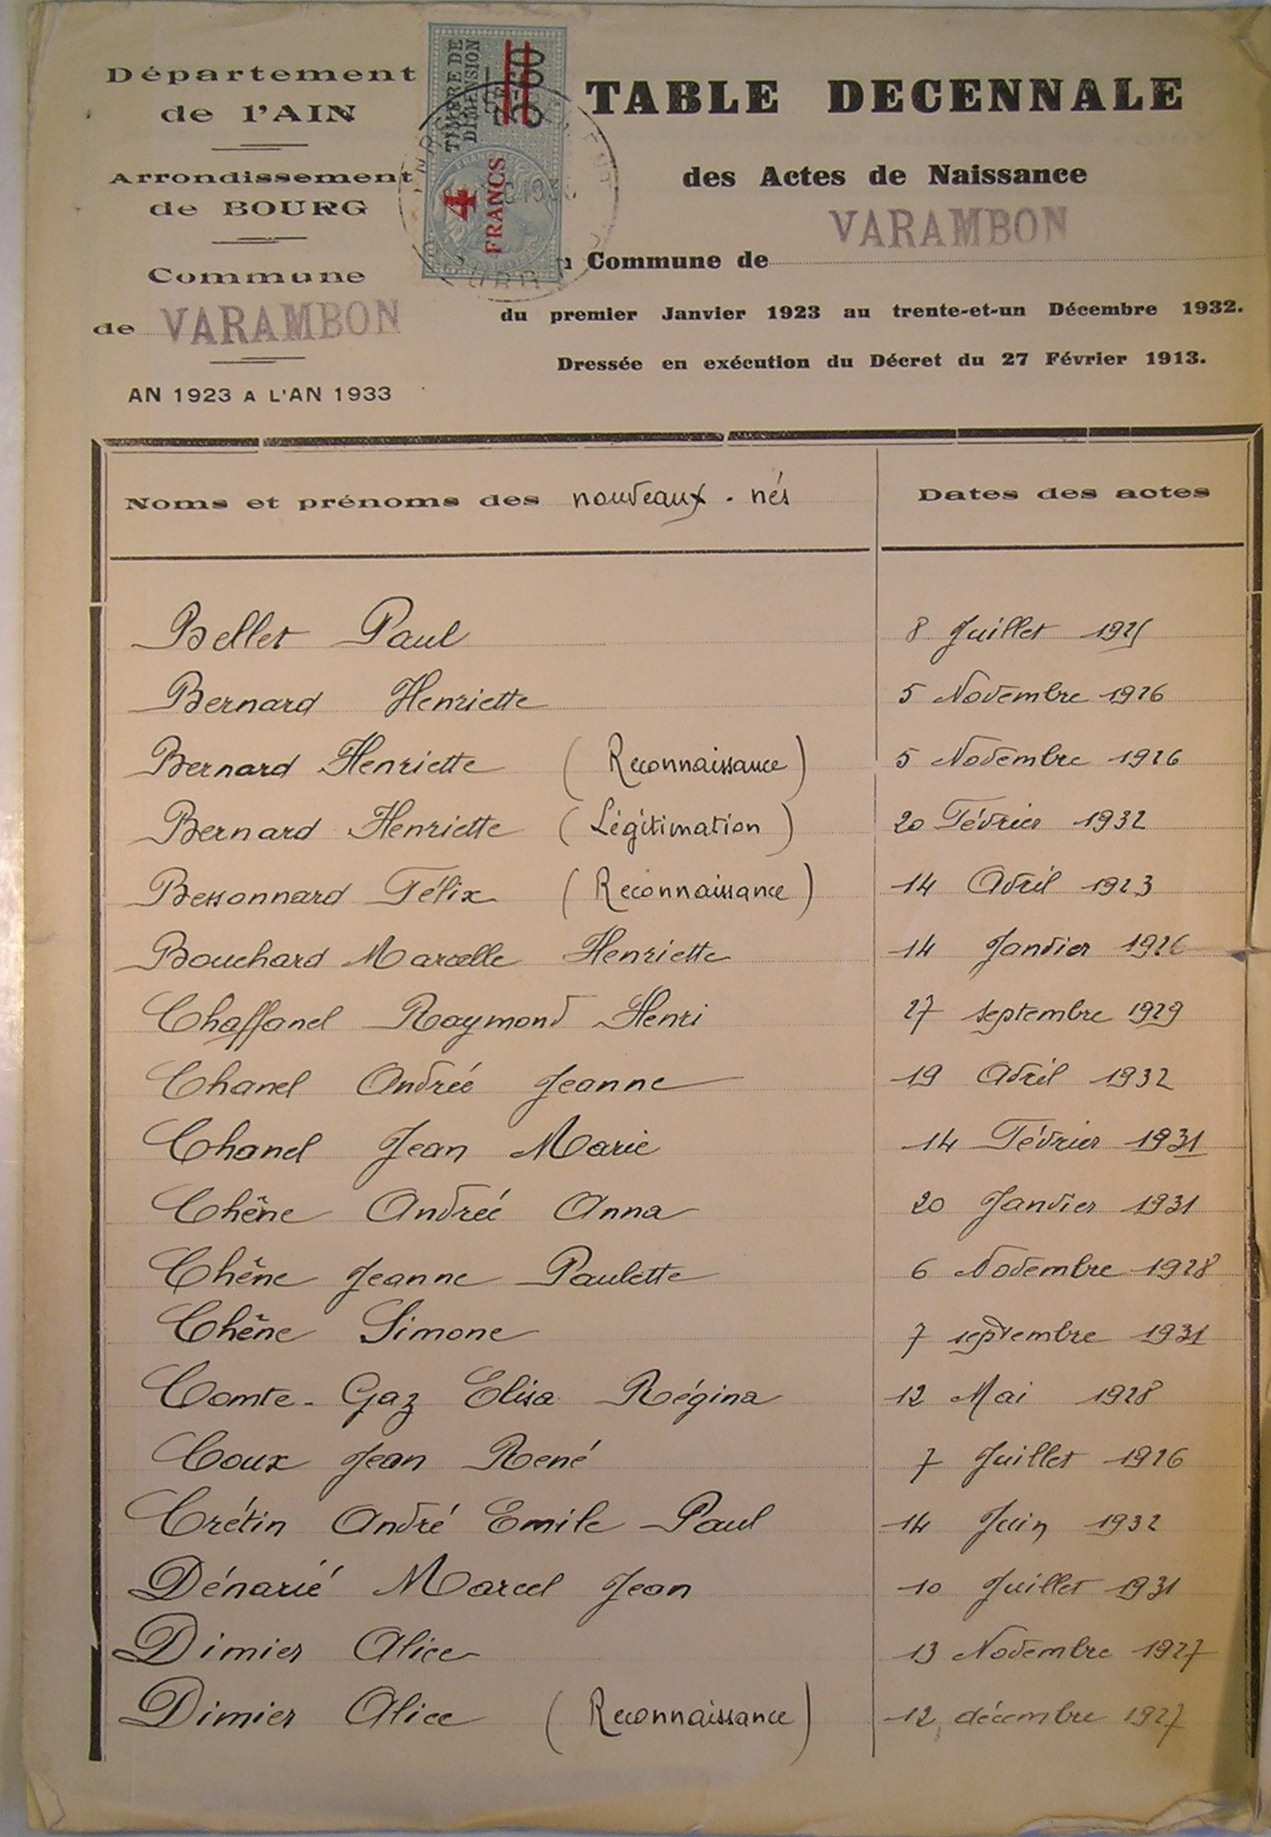 Département
de l'AIN
Arrondissement
de BOURG
Commune
de VARAMBON
AN 1923 A L'AN 1933
TIMBRE DE
DIMENSION
4
FRANCS
TABLE DECENNALE
des Actes de Naissance
Commune de VARAMBON
du premier Janvier 1923 au trente-et-un Décembre 1932.
Dressée en exécution du Décret du 27 Février 1913.
Noms et prénoms des nouveaux-nés Dates des actes
Bellet Paul 8 Juillet 1925
Bernard Henriette 5 Novembre 1926
Bernard Henriette (Reconnaissance) 5 Novembre 1926
Bernard Henriette (Légitimation) 20 Février 1932
Bessonnard Félix (Reconnaissance) 14 Avril 1923
Bouchard Marcelle Henriette 14 Janvier 1926
Chaffanel Raymond Henri 27 septembre 1929
Chanel Andrée Jeanne 19 Avril 1932
Chanel Jean Marie 14 Février 1931
Chêne Andrée Anna 20 Janvier 1931
Chêne Jeanne Paulette 6 Novembre 1928
Chêne Simone 7 septembre 1931
Comte-Gaz Elisa Régina 12 Mai 1928
Coux Jean René 7 Juillet 1926
Crétin André Emile Paul 14 Juin 1932
Dénarié Marcel Jean 10 Juillet 1931
Dimier Alice 13 Novembre 1927
Dimier Alice (Reconnaissance) 12 décembre 1927